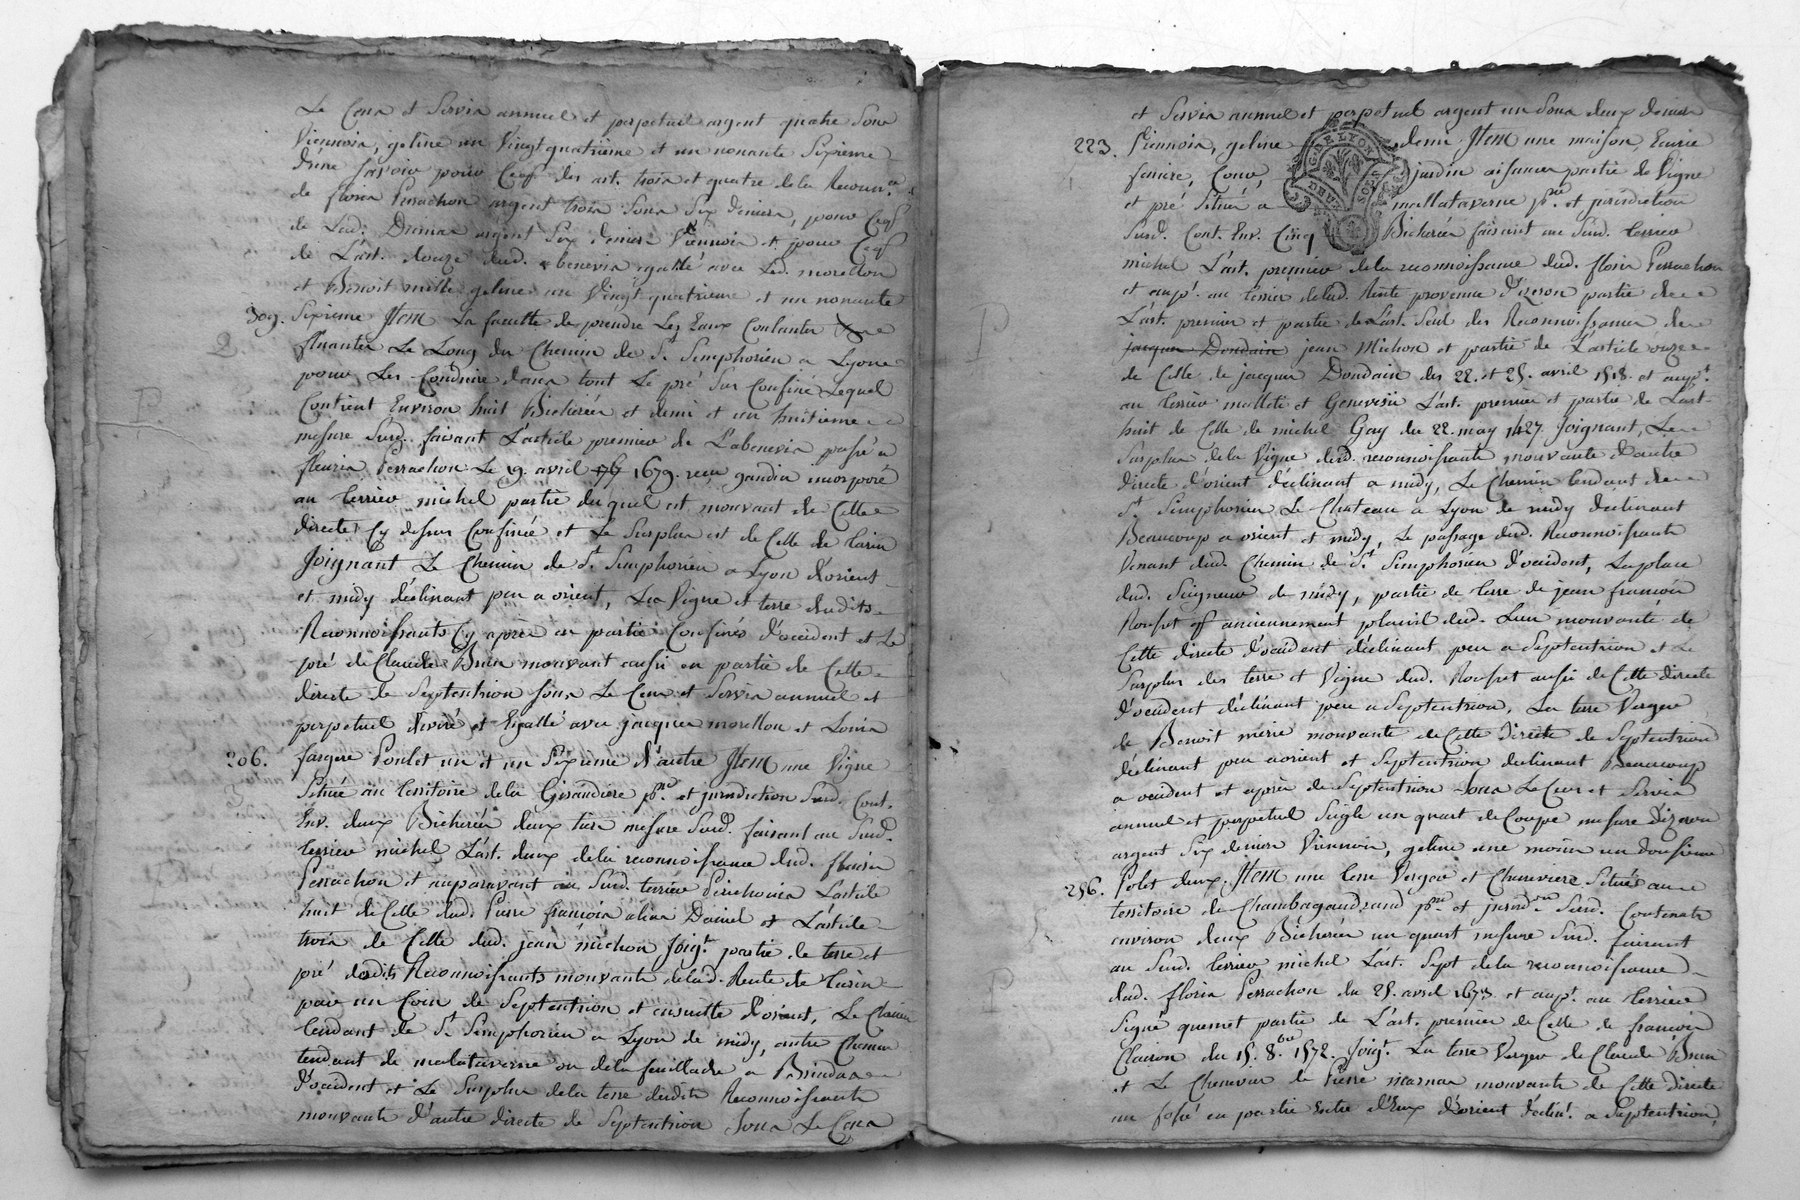 Le Cens et Servis annuel et perpetuel argent quatre Sous
Viennois, geline un Vingtquatrieme et un nonante Sixieme
d'une Savoir pour Ceux des art. trois et quatre de la Reconn.ce
de floris Perrachon argent trois Sous Six deniers, pour
de Lad. argent Six deniers Viennois et pour
de L'art. douze dud. abenevis egallé avec Led. morellon
et Benoit geline un Vingt quatrieme et un nonante
309. Sixieme Item La faculté de prendre Les Eaux Coulantes
fluantes Le Long du Chemin de St. Simphorien a Lyon
pour Les Conduire dans tout Le pré Sus Confiné Lequel
Contient Environ huit Bicherées et demi et un huitieme
mesure Susd. faisant L'article premier de L'abenevis passé a
fleuris Perrachon Le 9. avril 1679. reçu gandin incorporé
au terrier michel partie duquel est mouvant de Cette
directe Cy dessus Confinée et Le Surplus est de Celle de tarin
Joignant Le Chemin de St. Simphorien a Lyon d'orient
et midy déclinant peu a orient, La Vigne et terre desdits
Reconnoissants Cy après en partie Confinés d'occident et Le
pré de Claude Brun mouvant aussi en partie de Cette
directe de Septentrion Sous Le Cens et Servis annuel et
perpetuel divisé et Egallé avec jacques morellon et Louis
206. fargere Poulet un et un Sixieme d'autre Item une Vigne
Située au territoire de la Girandiere p.sse et jurisdiction Susd. Cont.
Env. deux Bicherées deux tiers mesure Susd. faisant au Susd.
terrier michel L'art. deux de la reconnoissance dud. fleuris
Perrachon et auparavant au Susd. terrier Perichonis L'article
huit de Celle dud. Pierre françois alias Daniel et L'article
trois de Celle dud. jean michon Joig.t partie de terre et
pré desdits Reconnoissants mouvante de lad. Rente de tarin
par un Coin de Septentrion et ensuitte d'orient, Le Chemin
tendant de St. Simphorien a Lyon de midy, autre Chemin
tendant de malataverne ou de la feuillade a Brindas
d'occident et Le Surplus de la terre desdits Reconnoissants
mouvante d'autre directe de Septentrion Sous Le Cens
et Servis annuel et perpetuel argent un Sous deux deniers
223. Viennois, geline demi Item une maison Ecurie
feniere, Cour, jardin aisances partie de Vigne
et pré Situé a mallataverne p.sse et jurisdiction
G. DE LYON
DEUX SOLS
Susd. Cont. Env. Cinq Bicherées faisant au Susd. terrier
michel L'art. premier de la reconnoissance dud. floris Perrachon
et aup.t au terrier de lad. Rente provenue d'izeron partie de
L'art. premier et partie de L'art. Seul des Reconnoissances de
jacques Doudain jean Michon et partie de L'article onze
de Celle de jacques Doudain des 22. et 25. avril 1518. et aup.t
au terrier malleti et Genevesii L'art. premier et partie de L'art.
huit de Celle de michel Gay du 22. may 1427. Joignant, Le
Surplus de la Vigne dud. reconnoissant mouvante d'autre
directe d'orient déclinant a midy, Le Chemin tendant de
St. Simphorien Le Chateau a Lyon de midy déclinant
Beaucoup a orient et midy, Le passage dud. Reconnoissant
Venant dud. Chemin de St. Simphorien d'occident, La place
dud. Seigneur de midy, partie de terre de jean françois
Rouset anciennement dud. Lieu mouvante de
Cette directe d'occident déclinant peu a Septentrion et Le
Surplus des terre et Vigne dud. Rouset aussi de Cette directe
d'occident déclinant peu a Septentrion, La terre Verger
de Benoit mirie mouvante de Cette directe de Septentrion
déclinant peu a orient et Septentrion déclinant Beaucoup
a occident et après de Septentrion Sous Le Cens et Servis
annuel et perpetuel Seigle un quart de Coupe mesure d'izeron
argent Six deniers Viennois, geline une moins un Douzieme
256. Polet deux. Item une terre Verger et Cheneviere Située au
territoire de Chambagaud p.sse et jurisd.on Susd. Contenant
environ deux Bicherées un quart mesure Susd. faisant
au Susd. terrier michel L'art. Sept de la reconnoissance
dud. floris Perrachon du 25. avril 1673 et aup.t au terrier
Signé quernet partie de L'art. premier de Celle de françois
Clairon du 15. 8.bre 1572. Joig.t La terre Verger de Claude Brun
et Le Chenevier de Pierre mouvante de Cette directe
un fossé en partie entre d'Eux d'orient déclin.t a Septentrion,